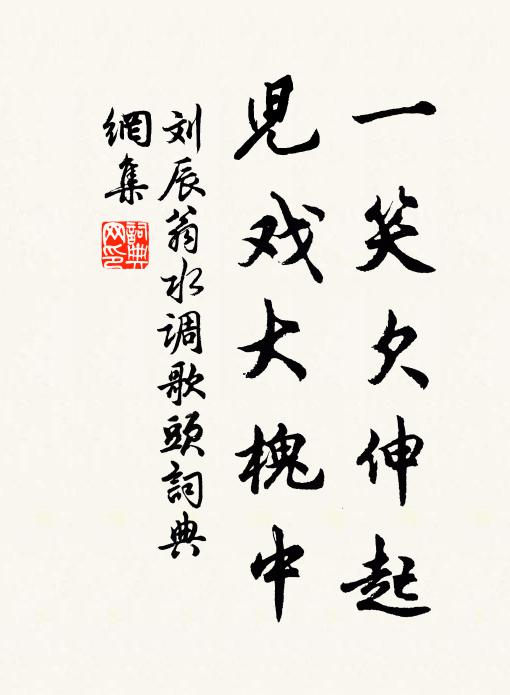 一笑欠伸起
兒戏大槐中
刘辰翁水调歌頭詞典
網集
詞典
网印